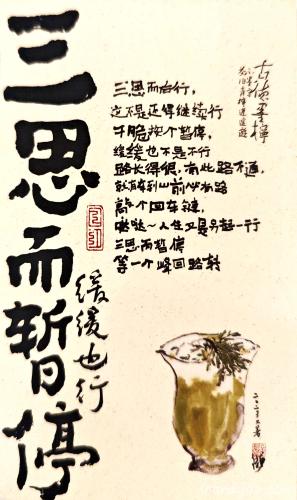 三思而暂停
缓缓也行
三思而后行，
这不是还得继续行
干脆按个暂停，
缓缓也不是不行
路长得很，有此路不通，
就有车到山前必有路
敲个回车键，
哒哒~人生又是另起一行
三思而暂停
等一个峰回路转